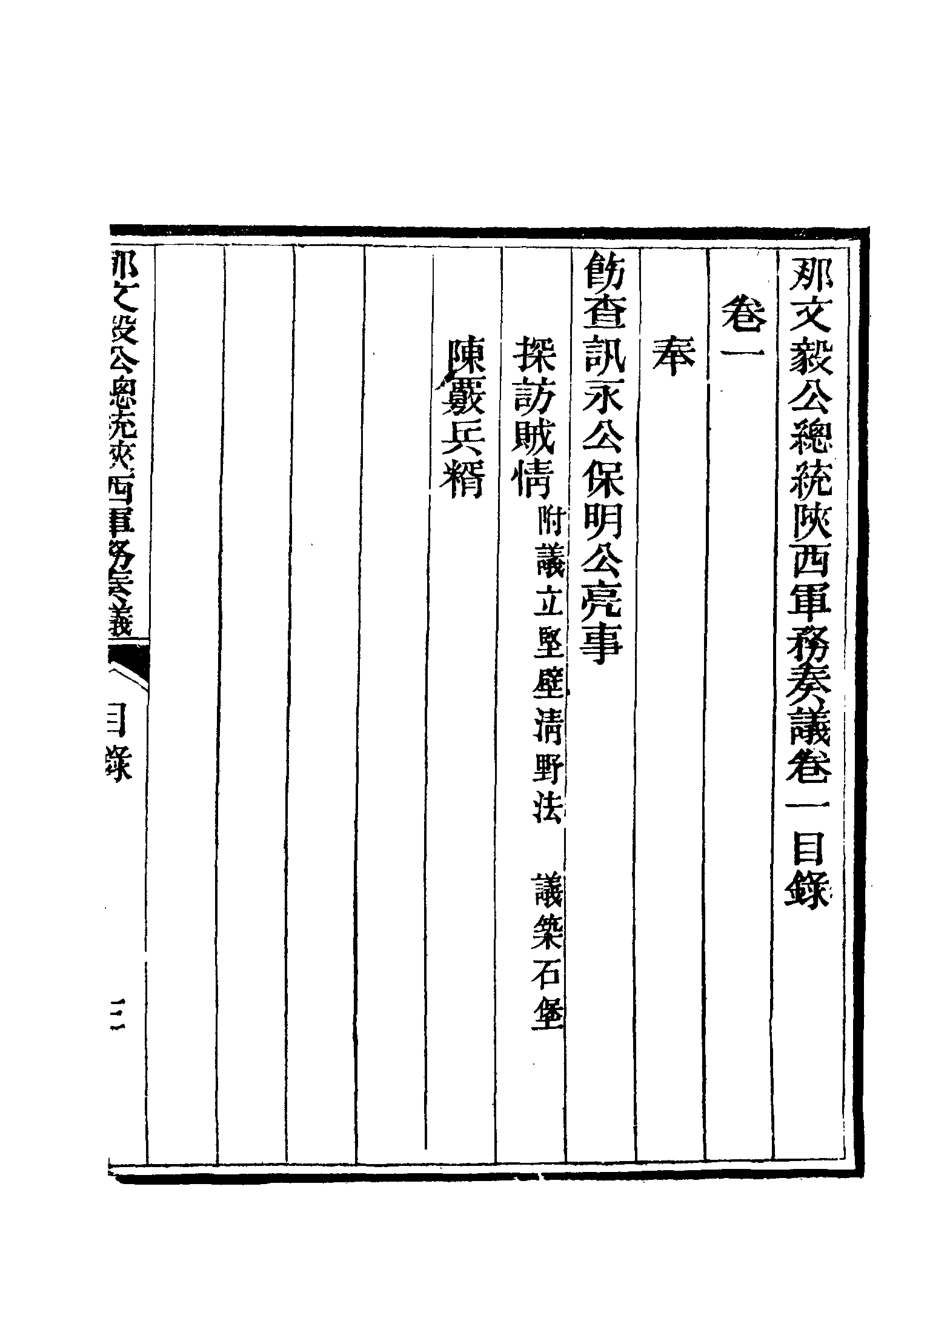 那文毅公總統陝西軍務奏議卷一目錄
卷一
奉
飭查訊永公保明公亮事
探訪賊情 附議立堅壁清野法 議築石堡
陳覈兵糈
那文毅公總统陝西軍務奏議 目錄 三